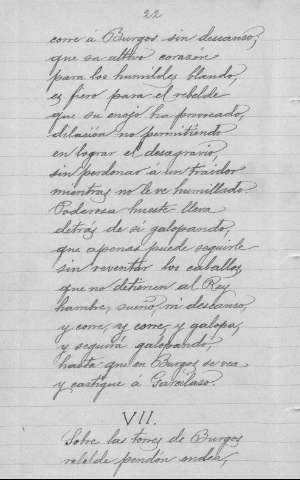 22
corre á Burgos sin descanso,
que su altivo corazón
para los humildes blando,
es fiero para el rebelde
que su enojo ha provocado,
dilación no permitiendo
en lograr el desagravio,
sin perdonar a un traidor
mientras no le ve humillado.
Poderosa hueste lleva
detrás de sí galopando,
que apenas puede seguirle
sin reventar los caballos,
que no detienen al Rey
hambre, sueño, ni descanso,
y corre, y corre, y galopa,
y seguirá galopando,
hasta que en Burgos se vea
y castigue á Garcilaso.
VII.
Sobre las torres de Burgos
rebelde pendón ondea,